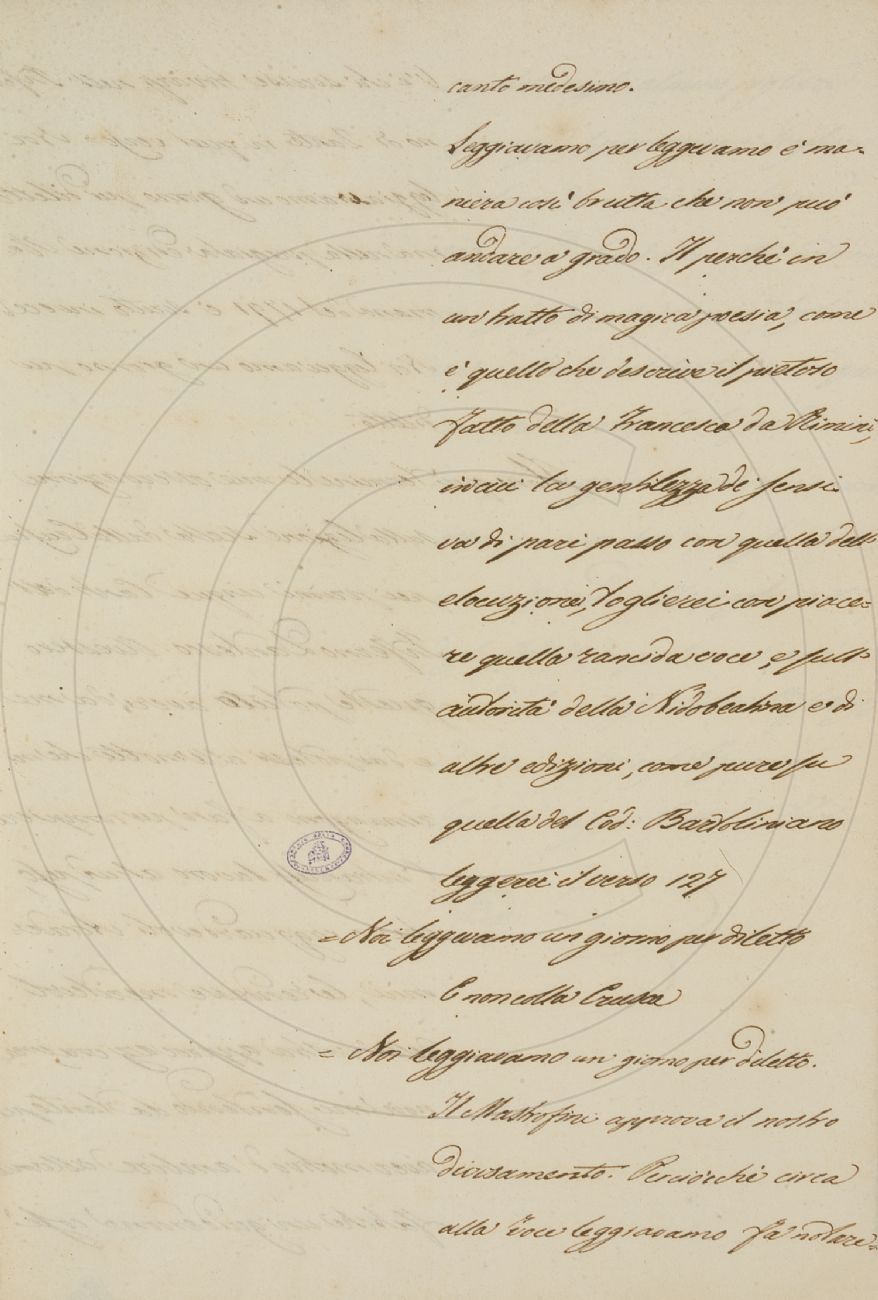 canto medesimo.
Leggiavamo per leggevamo è ma-
niera così brutta che non può
andare a grado. Il perchè in
un tratto di magica poesia, come
è quello che descrive il pietoso
fatto della Francesca da Rimini,
in cui la gentilezza de' sensi
va di pari passo con quella dell'
elocuzione, toglierei con piace-
re quella rancida voce, e sull'
autorità della Nidobeatina e di
altre edizioni, come pure su
quella del Cod: Bartoliniano
leggerei il verso 127
= Noi leggevamo un giorno per diletto
E non colla Crusca
= Noi leggiavamo un giorno per diletto.
Il Mastrofini approva il nostro
divisamento. Perciocchè circa
alla voce leggiavamo fa notare=